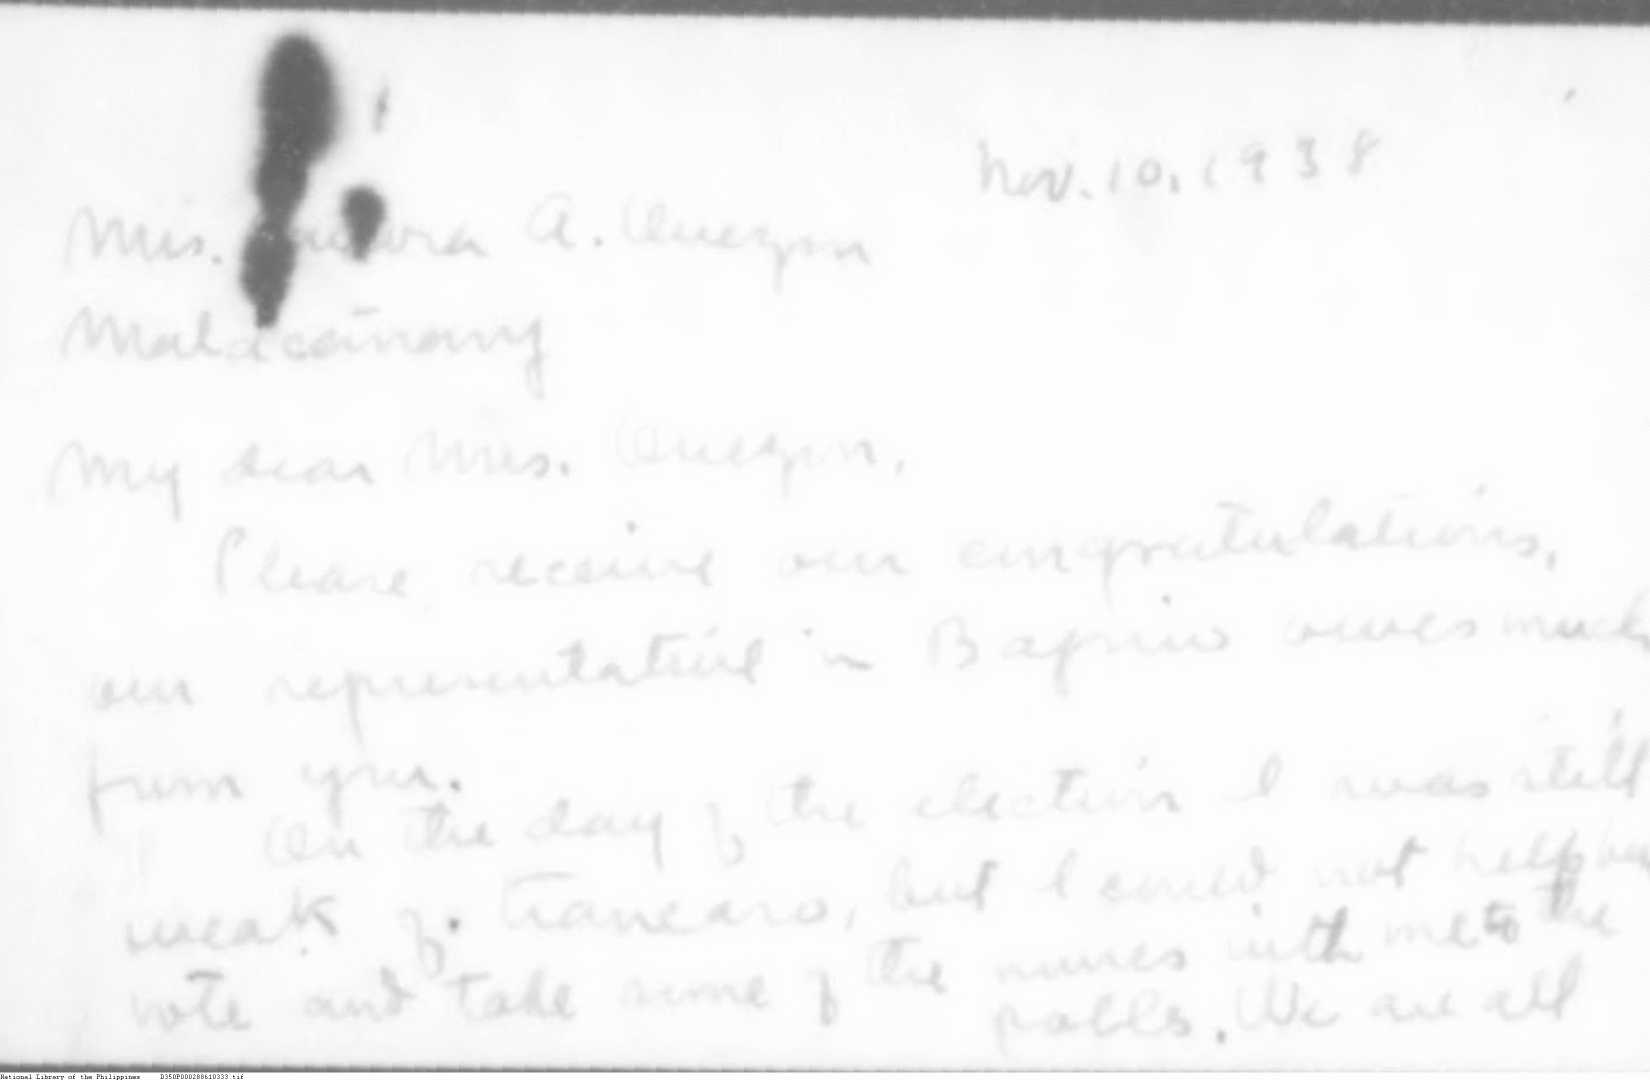 Nov. 10, 1938
Mrs. Aurora A. Quezon
Malacañang
My dear Mrs. Quezon,
Please receive our congratulations,
our representative in Baguio owes much
from you.
On the day of the election I was still
weak of trancaso, but I could not help but
vote and take some of the nurses with me to the
polls. We are all
National Library of the Philippines D350P000288610333.tif